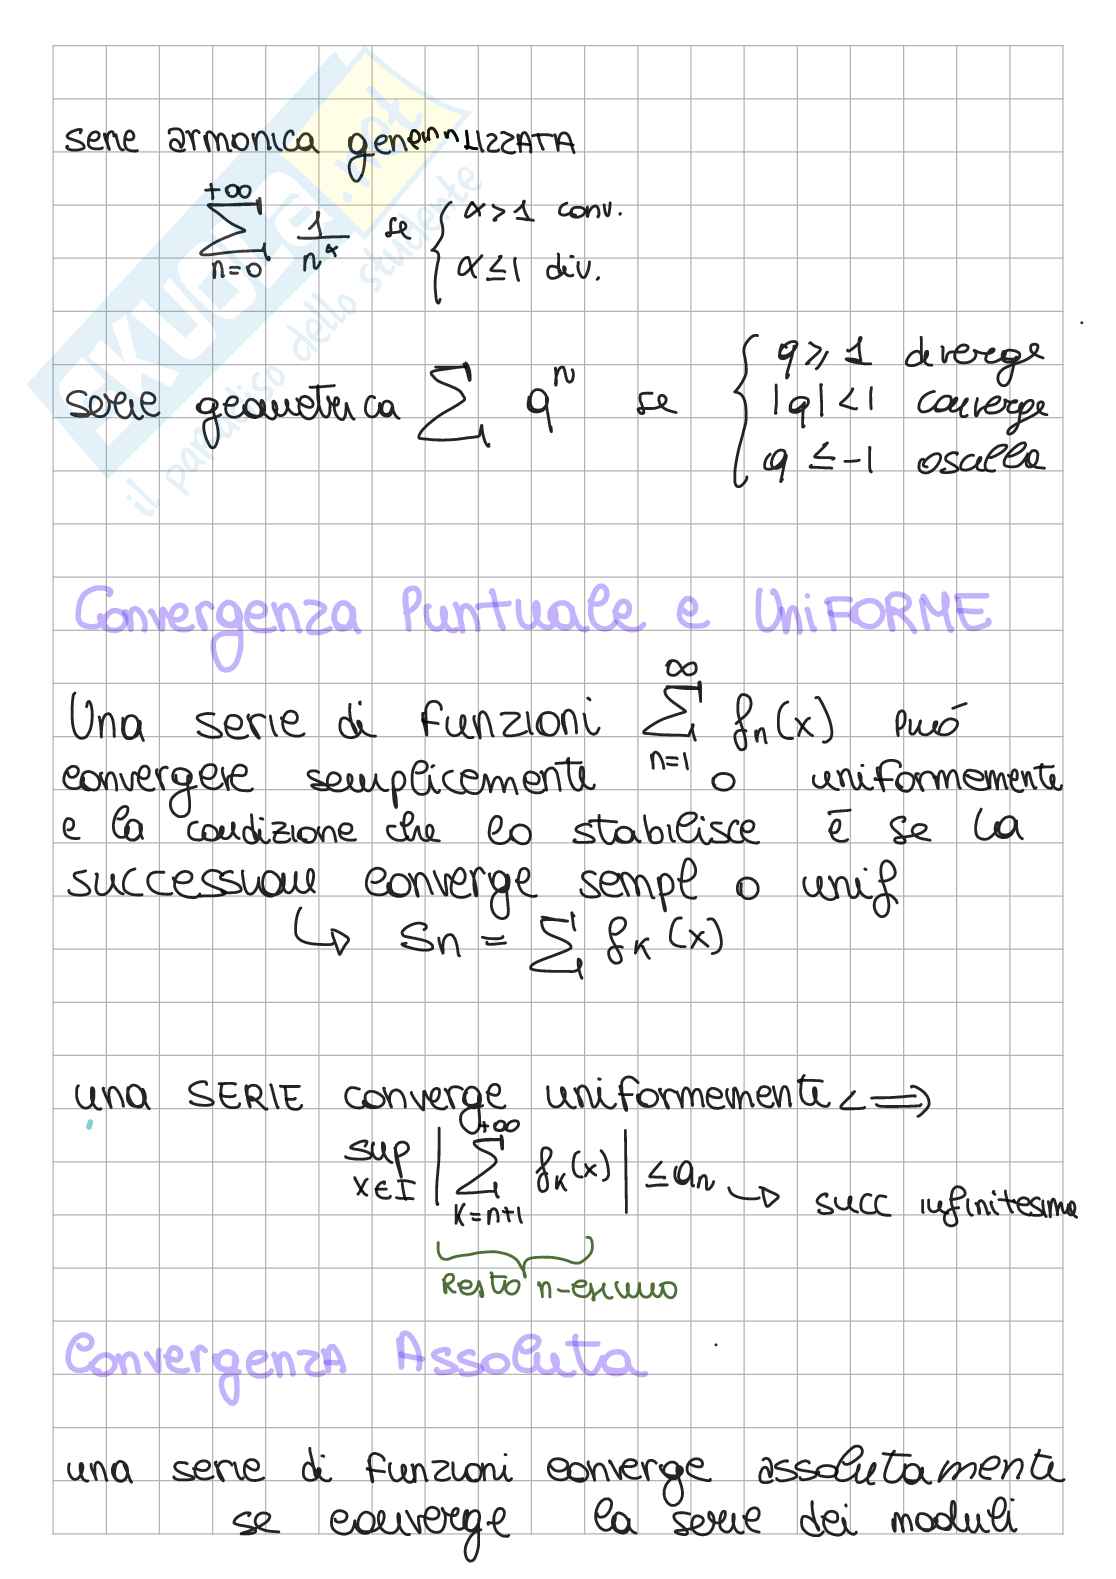 serie armonica generalizzata
+∞
∑ 1/n^α se { α > 1 conv.
n=0
α ≤ 1 div.
serie geometrica ∑ q^n se { q ⩾ 1 diverge
|q| < 1 converge
q ≤ -1 oscilla
Convergenza Puntuale e UniFORME
Una serie di funzioni ∑_{n=1}^{∞} f_n(x) può
convergere semplicemente o uniformemente
e la condizione che lo stabilisce è se la
successione converge sempl o unif
↳ Sn = ∑ f_K (x)
una SERIE converge uniformemente <=>
sup_{x∈I} | ∑_{K=n+1}^{+∞} f_K(x) | ≤ a_n → succ infinitesima
Resto n-esimo
Convergenza Assoluta
una serie di funzioni converge assolutamente
se converge la serie dei moduli
SKUOLA.net
il paradiso dello studente